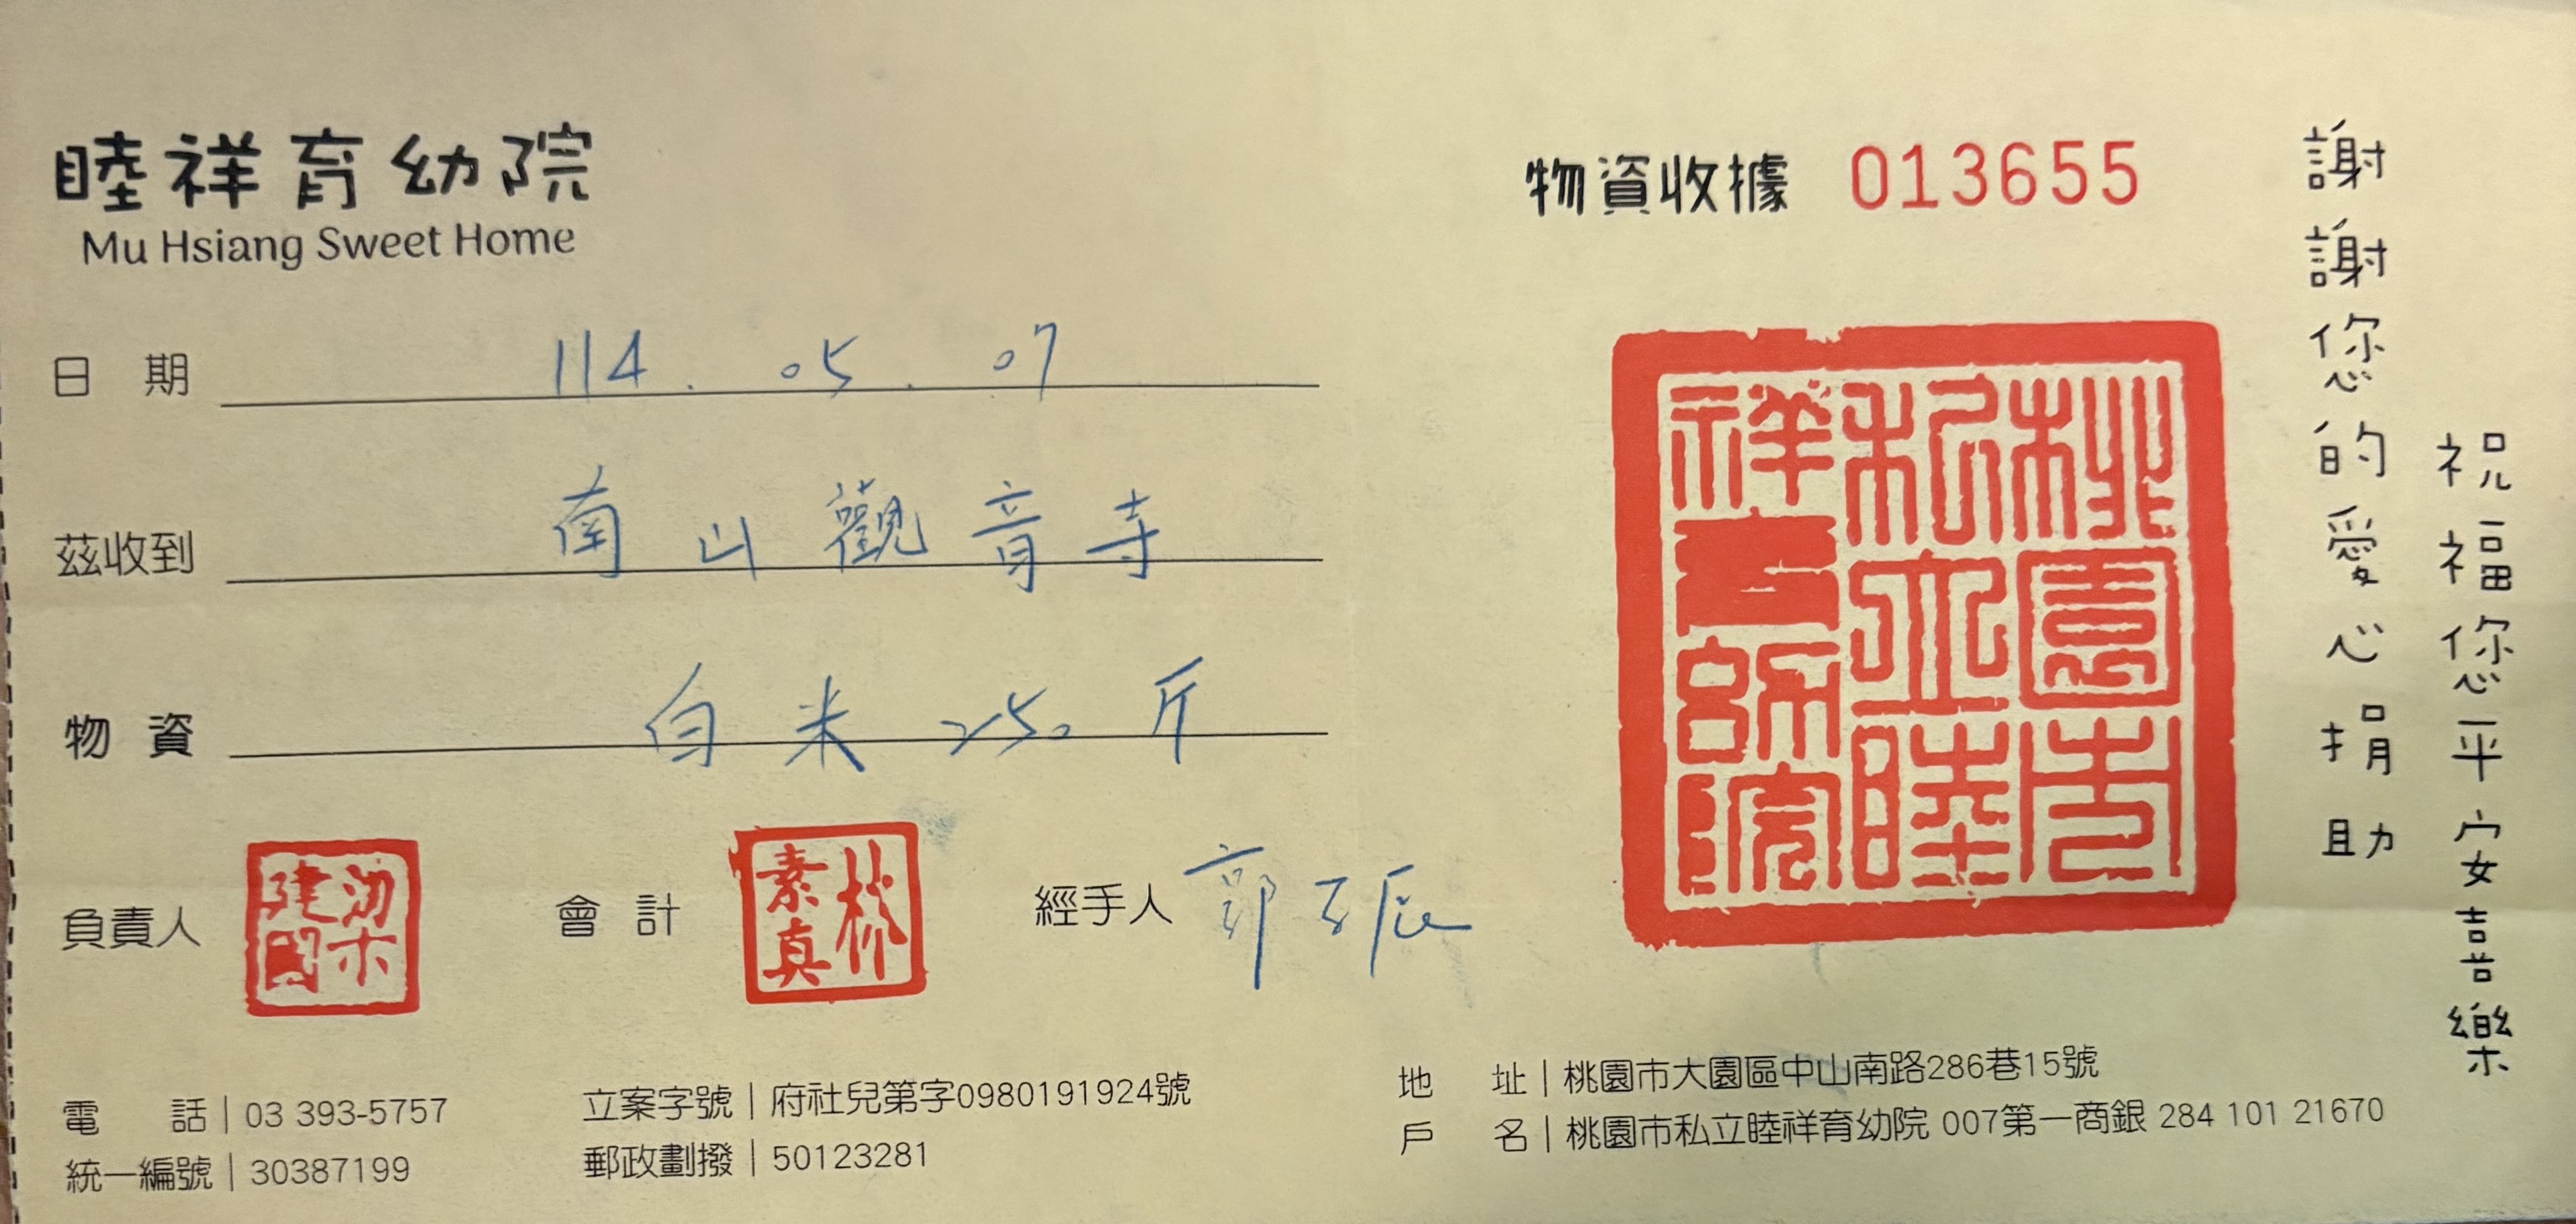 睦祥育幼院
Mu Hsiang Sweet Home
物資收據 013655
日期 114.05.07
茲收到 南山觀音寺
物資 白米250斤
負責人 梁建國
會計 林素真
經手人 郭
桃園市私立睦祥育幼院
謝謝您的愛心捐助
祝福您平安喜樂
電話｜03 393-5757
統一編號｜30387199
立案字號｜府社兒第字0980191924號
郵政劃撥｜50123281
地址｜桃園市大園區中山南路286巷15號
戶名｜桃園市私立睦祥育幼院 007第一商銀 284 101 21670